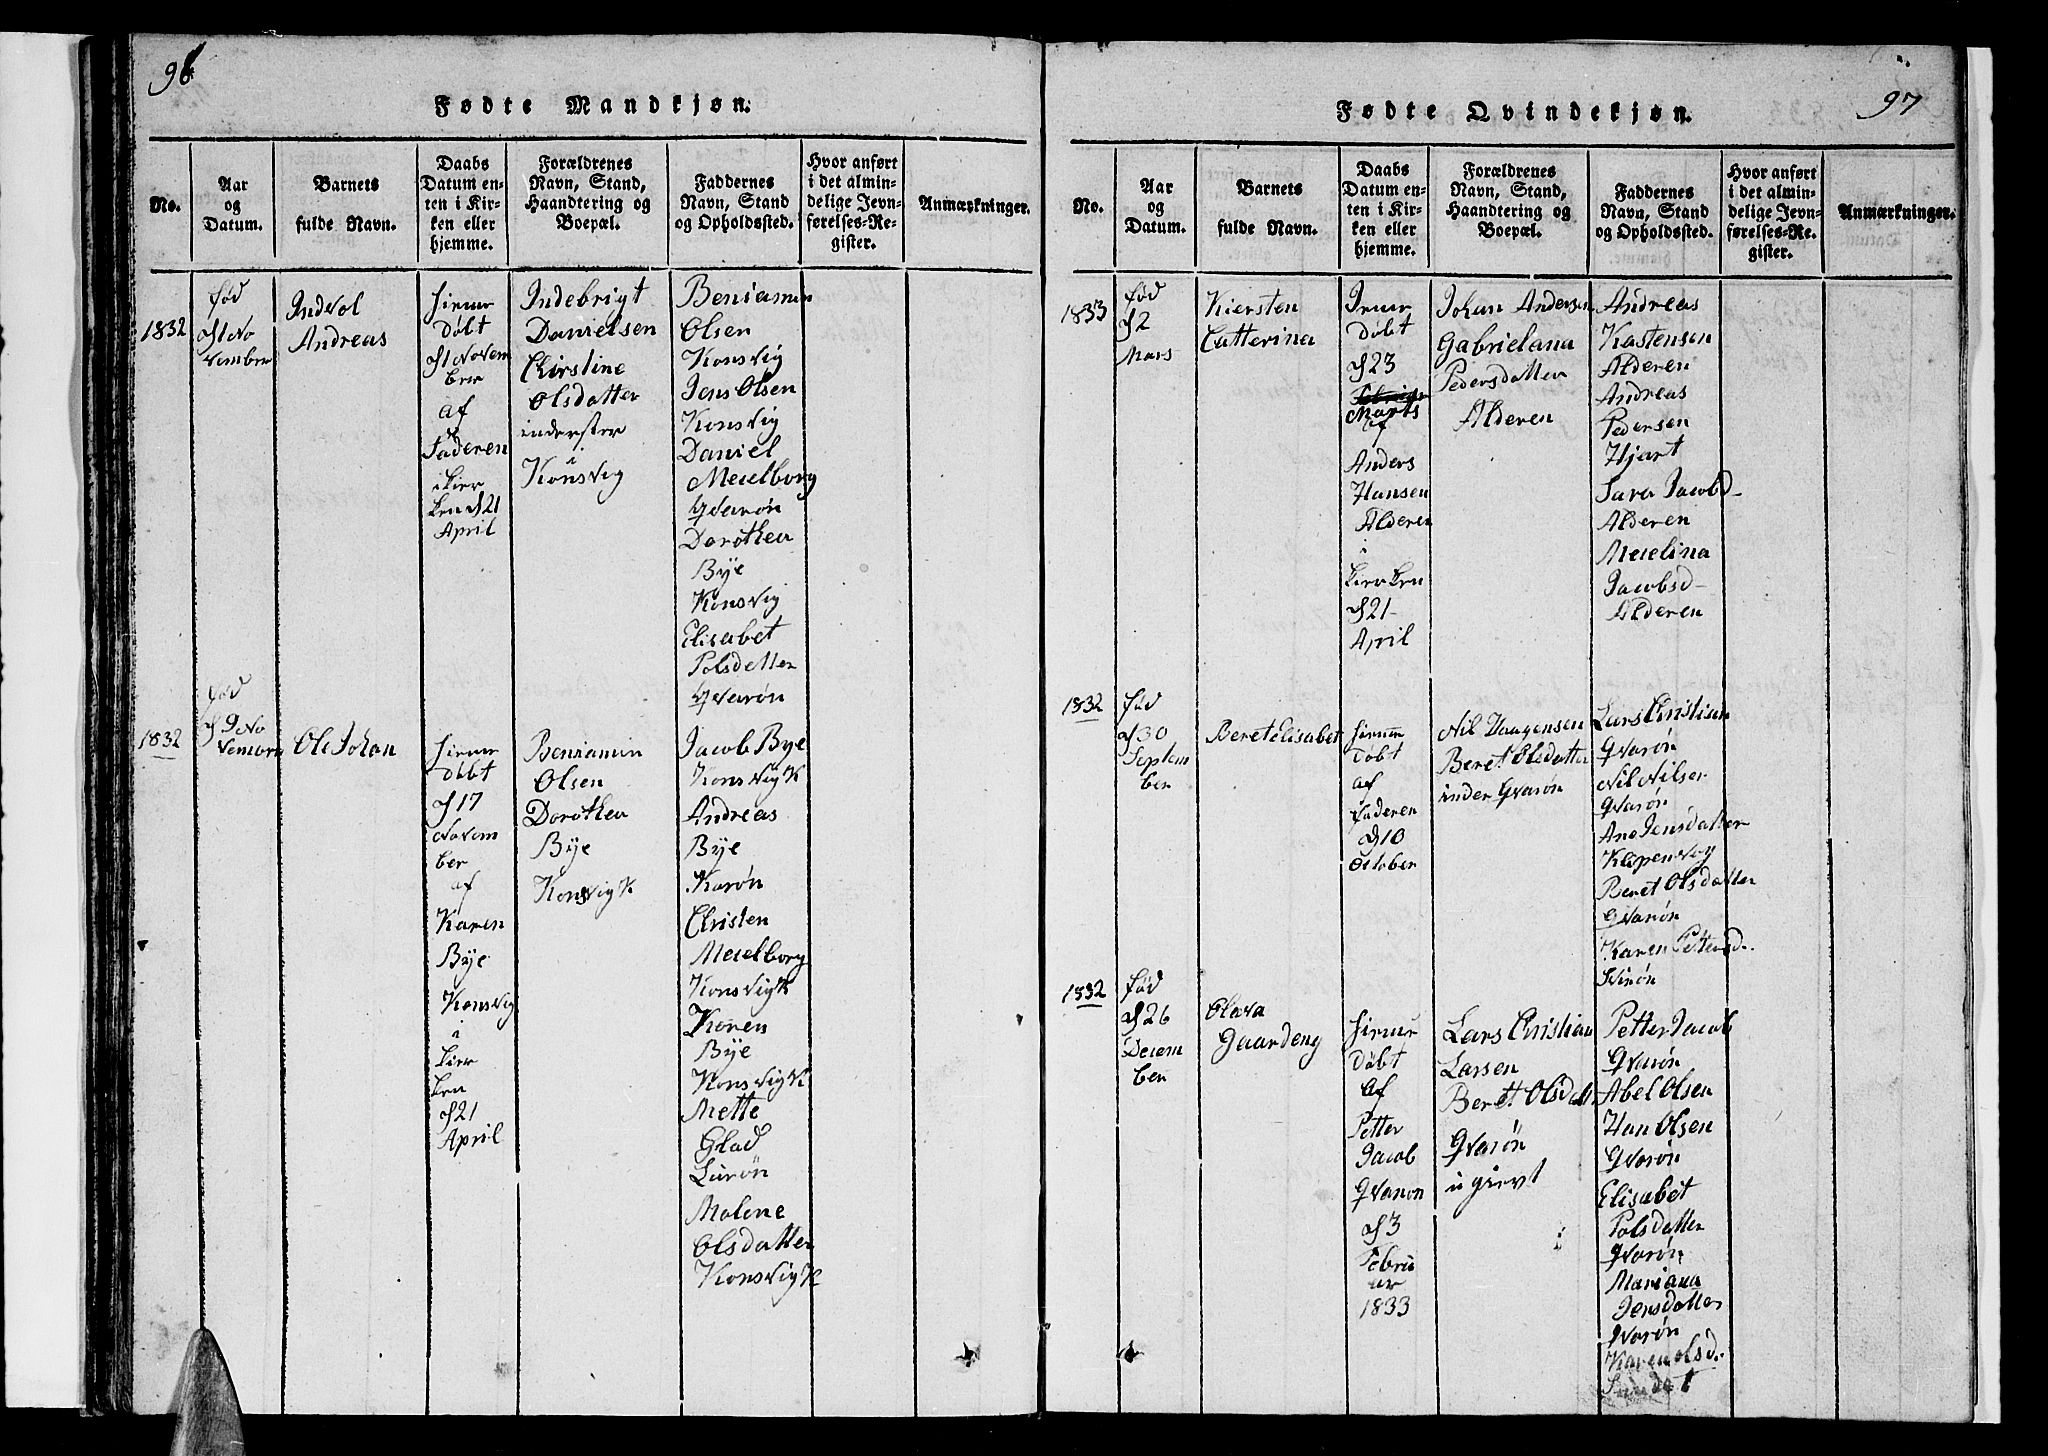 96
Fødte Mandkjøn.
No.
Aar
og
Datum.
Barnets
fulde Navn.
Daabs
Datum en-
ten i Kir-
ken eller
hjemme.
Forældrenes
Navn, Stand,
Haandtering og
Boepæl.
Faddernes
Navn, Stand
og Opholdssted.
Hvor anført
i det almin-
delige Jevn-
førelses-Re-
gister.
Anmærkninger.
1832
fød
d1 No
vember
Indvol
Andreas
hieme
Døbt
d1 Novem
ber
af
Faderen
i kier
ken d21
April
Indebrigt
Danielsen
Chirstine
Olsdatter
inderster
i
Konsvig
Beniamin
Olsen
Konsvig
Jens Olsen
Konsvig
Daniel
Meielborg
Qvarøn
Dorothea
Bÿe
Konsvig
Elisabet
Polsdatter
Qvarøn
1832
fød
d9 No
vember
Ole Johan
hieme
døbt
d17
Novem
ber
af
Karen
Bÿe
Konsvig
i
kier
ken
d21
April
Beniamin
Olsen
Dorothea
Bÿe
Konsvigk
Jacob Bye
Konsvigk
Andreas
Bÿe
Karøn
Christen
Meielborg
Konsvigk
Karen
Bÿe
Konsvigk
Mette
Glad
Lurøn
Malene
Olsdatter
Konsvigk
97
Fødte Qvindekjøn.
No.
Aar
og
Datum.
Barnets
fulde Navn.
Daabs
Datum en-
ten i Kir-
ken eller
hjemme.
Forældrenes
Navn, Stand,
Haandtering og
Boepæl.
Faddernes
Navn, Stand
og Opholdssted.
Hvor anført
i det almin-
delige Jevn-
førelses-Re-
gister.
Anmærkninger.
1833
fød
d2
Mars
Kiersten
Catterina
Døbt
d23
Marts
af
Anders
Hansen
Alderen
i
kierken
d21
April
Johan Andersen
Gabrielana
Pedersdatter
Alderen
Andreas
Kastensen
Alderen
Andreas
Pedersen
Hjart
Sara Jacobd
Alderen
Meielina
Jacobsd
Alderen
1832
fød
d30
Septem
ber
Beret elisabet
hieme
døbt
af
faderen
d10
October
Nil Haagensen
Beret Olsdatter
inder Qvarøn
Lars Christian
Qvarøn
Nil Nilsen
Qvarøn
Ane Jensdatter
Klopenvog
Beret Olsdatter
Qvarøn
Karen Pettersd.
Svinøn
1832
fød
d26
Decem
ber
Olava
Gaardeng
hieme
døbt
af
Petter
Jacob
Qvarøn
d3
Febru
ar
1833
Lars Christian
Larsen
Beret Olsdatt
Qvarøn
u givt
Petter Jacob
Qvarøn
Abel Olsen
Han Olsen
Qvarøn
Elisabet
Polsdatter
Qvarøn
Mariana
Jensdatter
Qvarøn
Karen olsd.